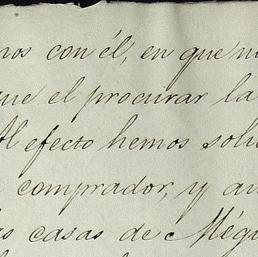 nos con él, en que n
que el procurar la
Al efecto hemos soli
comprador, y au
s casas de Mégi